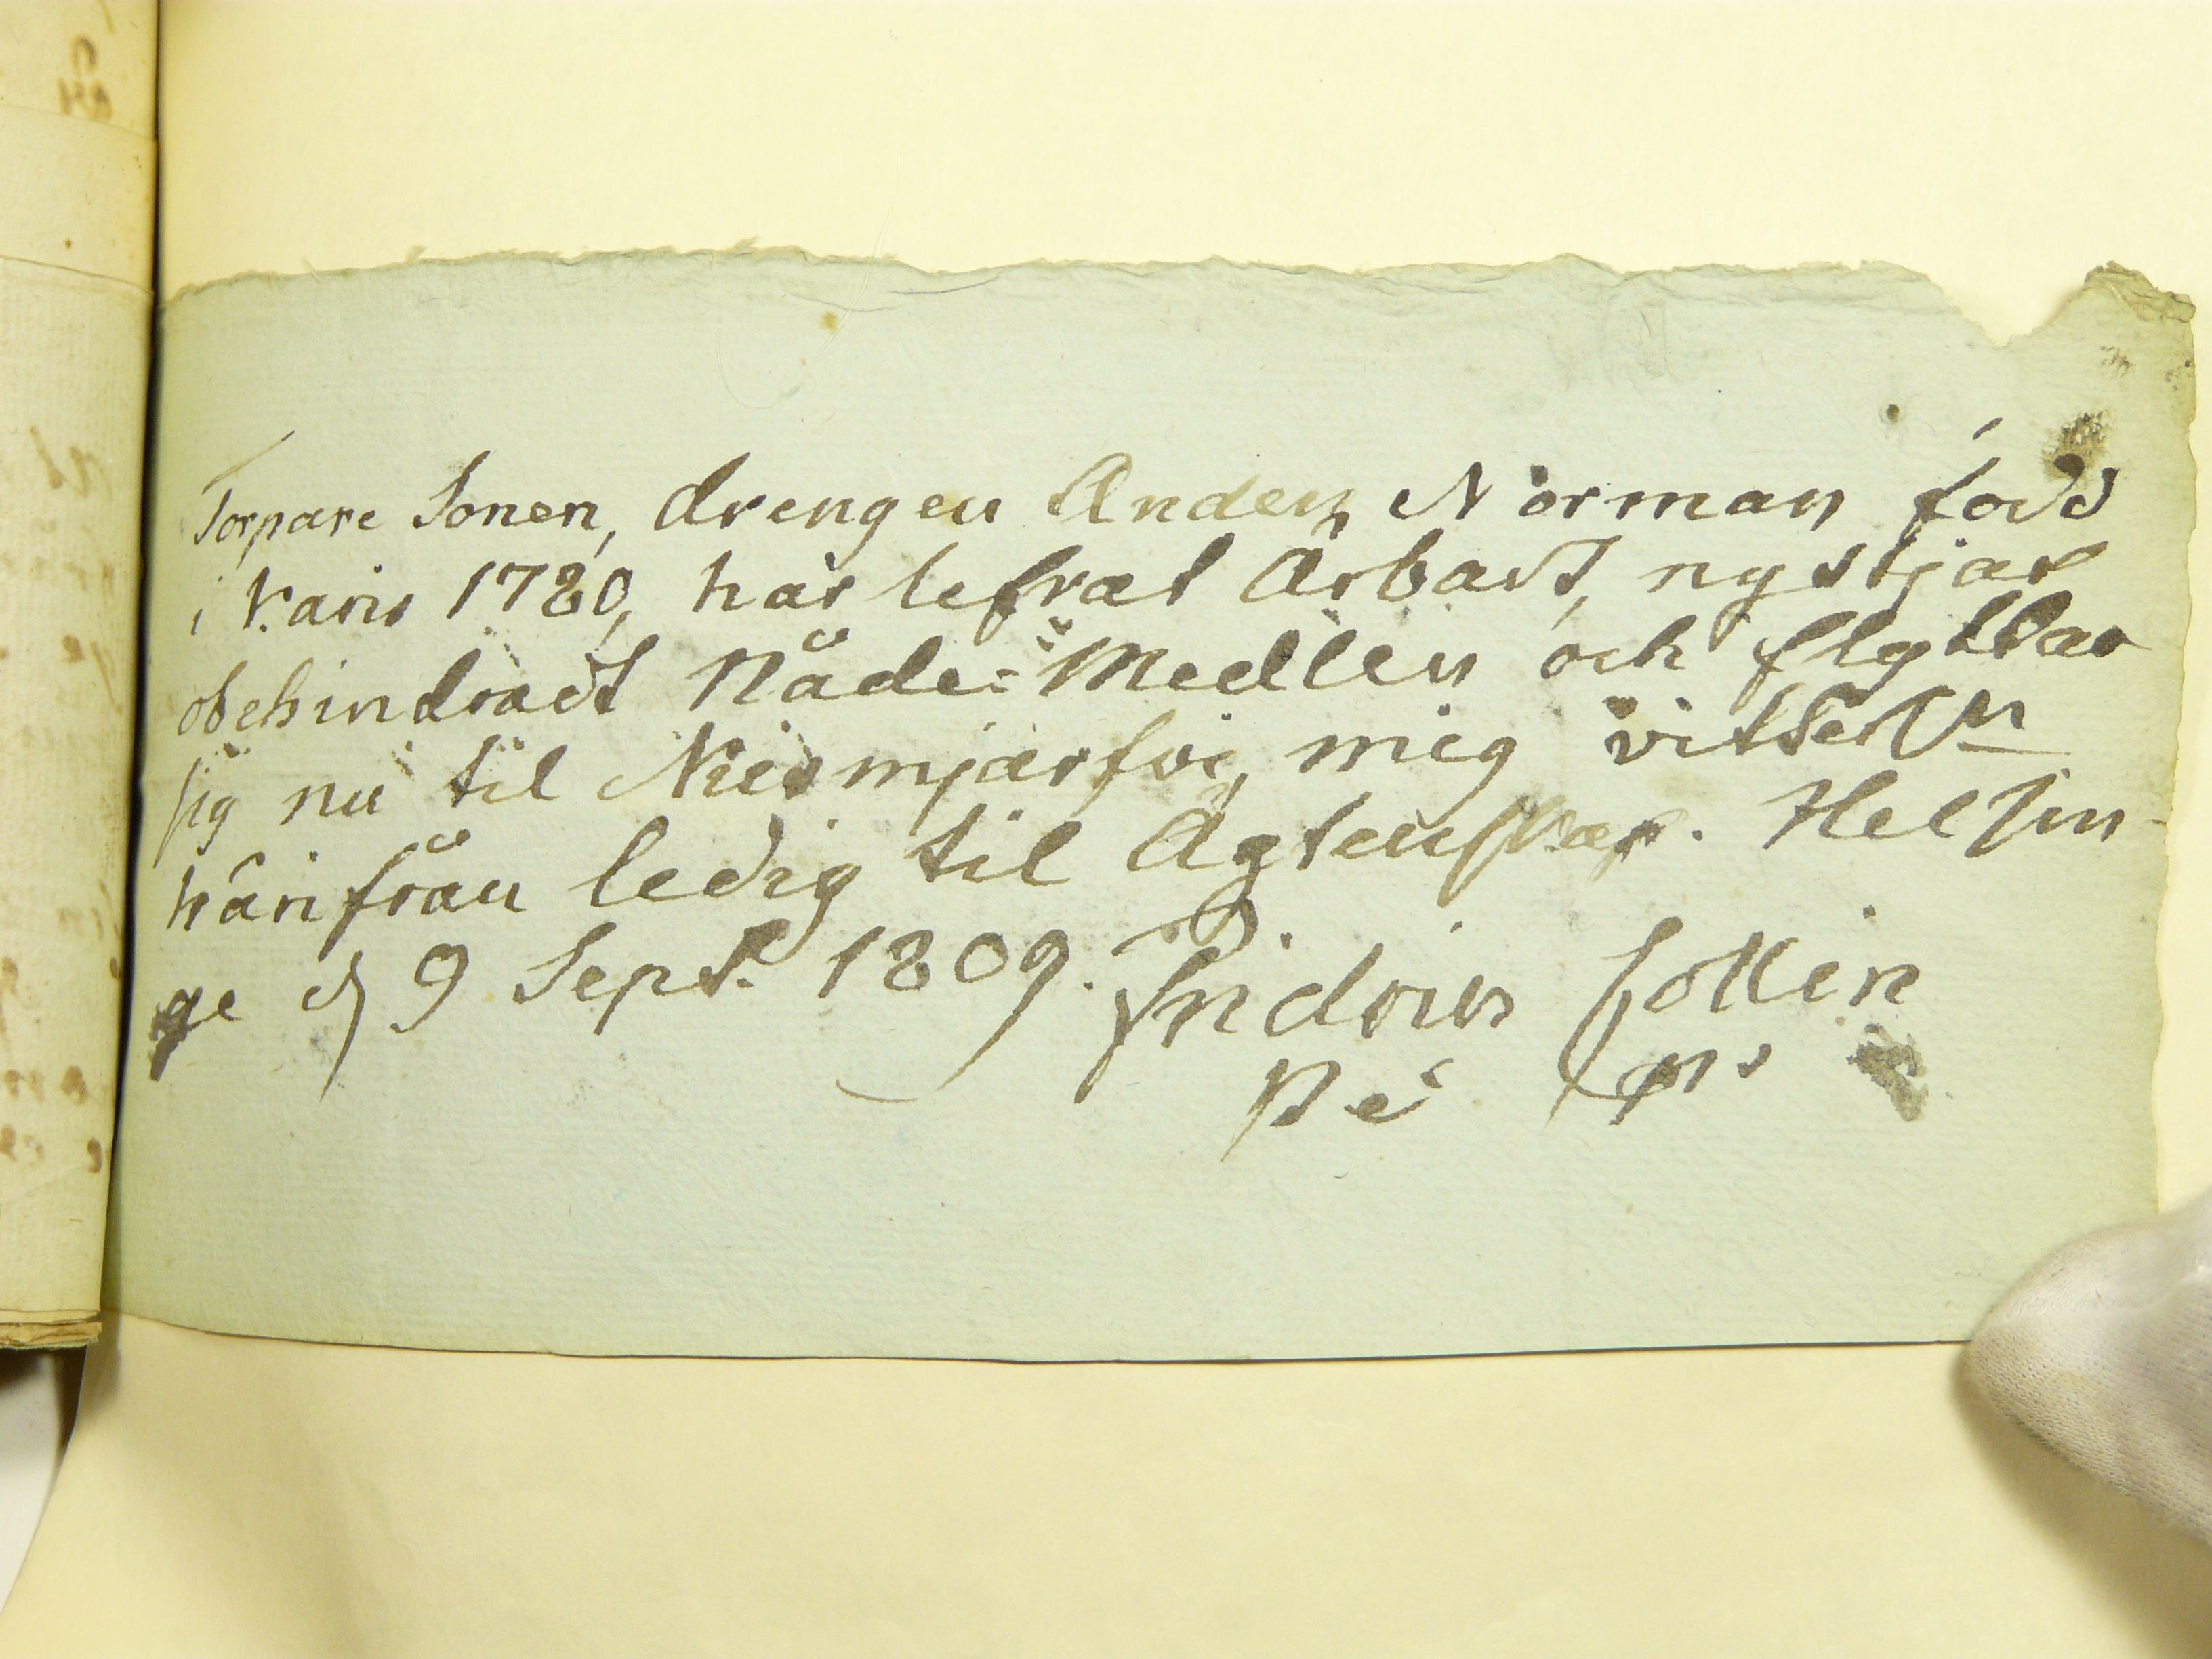 Torpare Sonen, drengen Anders Norman född
i Karis 1780, har lefvat Ärbart, nyttjat
obehindradt Nåde-Medlen och flyttar
sig nu til Nummjærfvi, mig vitterl:n
härifrån ledig til Ägtenskap. Helsin-
ge d 9 Sept. 1809. Fridric Collin